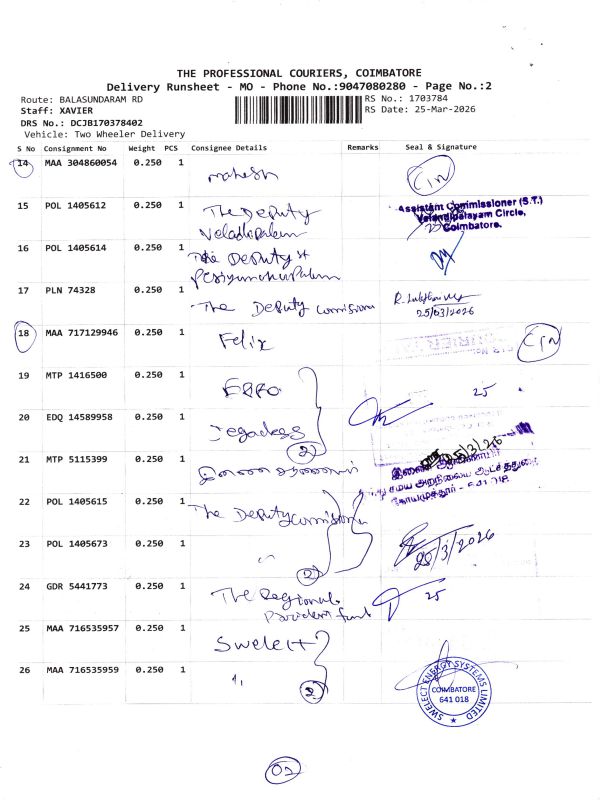 THE PROFESSIONAL COURIERS, COIMBATORE
Delivery Runsheet - MO - Phone No.:9047080280 - Page No.:2
Route: BALASUNDARAM RD
RS No.: 1703784
Staff: XAVIER
RS Date: 25-Mar-2026
DRS No.: DCJB170378402
Vehicle: Two Wheeler Delivery
S No Consignment No Weight PCS Consignee Details Remarks Seal & Signature
14 MAA 304860054 0.250 1 mahesh CIN
15 POL 1405612 0.250 1 The Deputy
Assistant Commissioner (S.T.)
Velandipalayam Circle,
Coimbatore.
16 POL 1405614 0.250 1 The Deputy
17 PLN 74328 0.250 1 The Deputy
25/03/2026
18 MAA 717129946 0.250 1 Felix CIN
19 MTP 1416500 0.250 1 25
20 EDQ 14589958 0.250 1
2
21 MTP 5115399 0.250 1
22 POL 1405615 0.250 1 The Deputy
23 POL 1405673 0.250 1 25/3/2026
2
24 GDR 5441773 0.250 1 The Regional 25
Provident fund
25 MAA 716535957 0.250 1 Swelect
26 MAA 716535959 0.250 1 2
SWELECT ENERGY SYSTEMS LIMITED
COIMBATORE
641 018
02